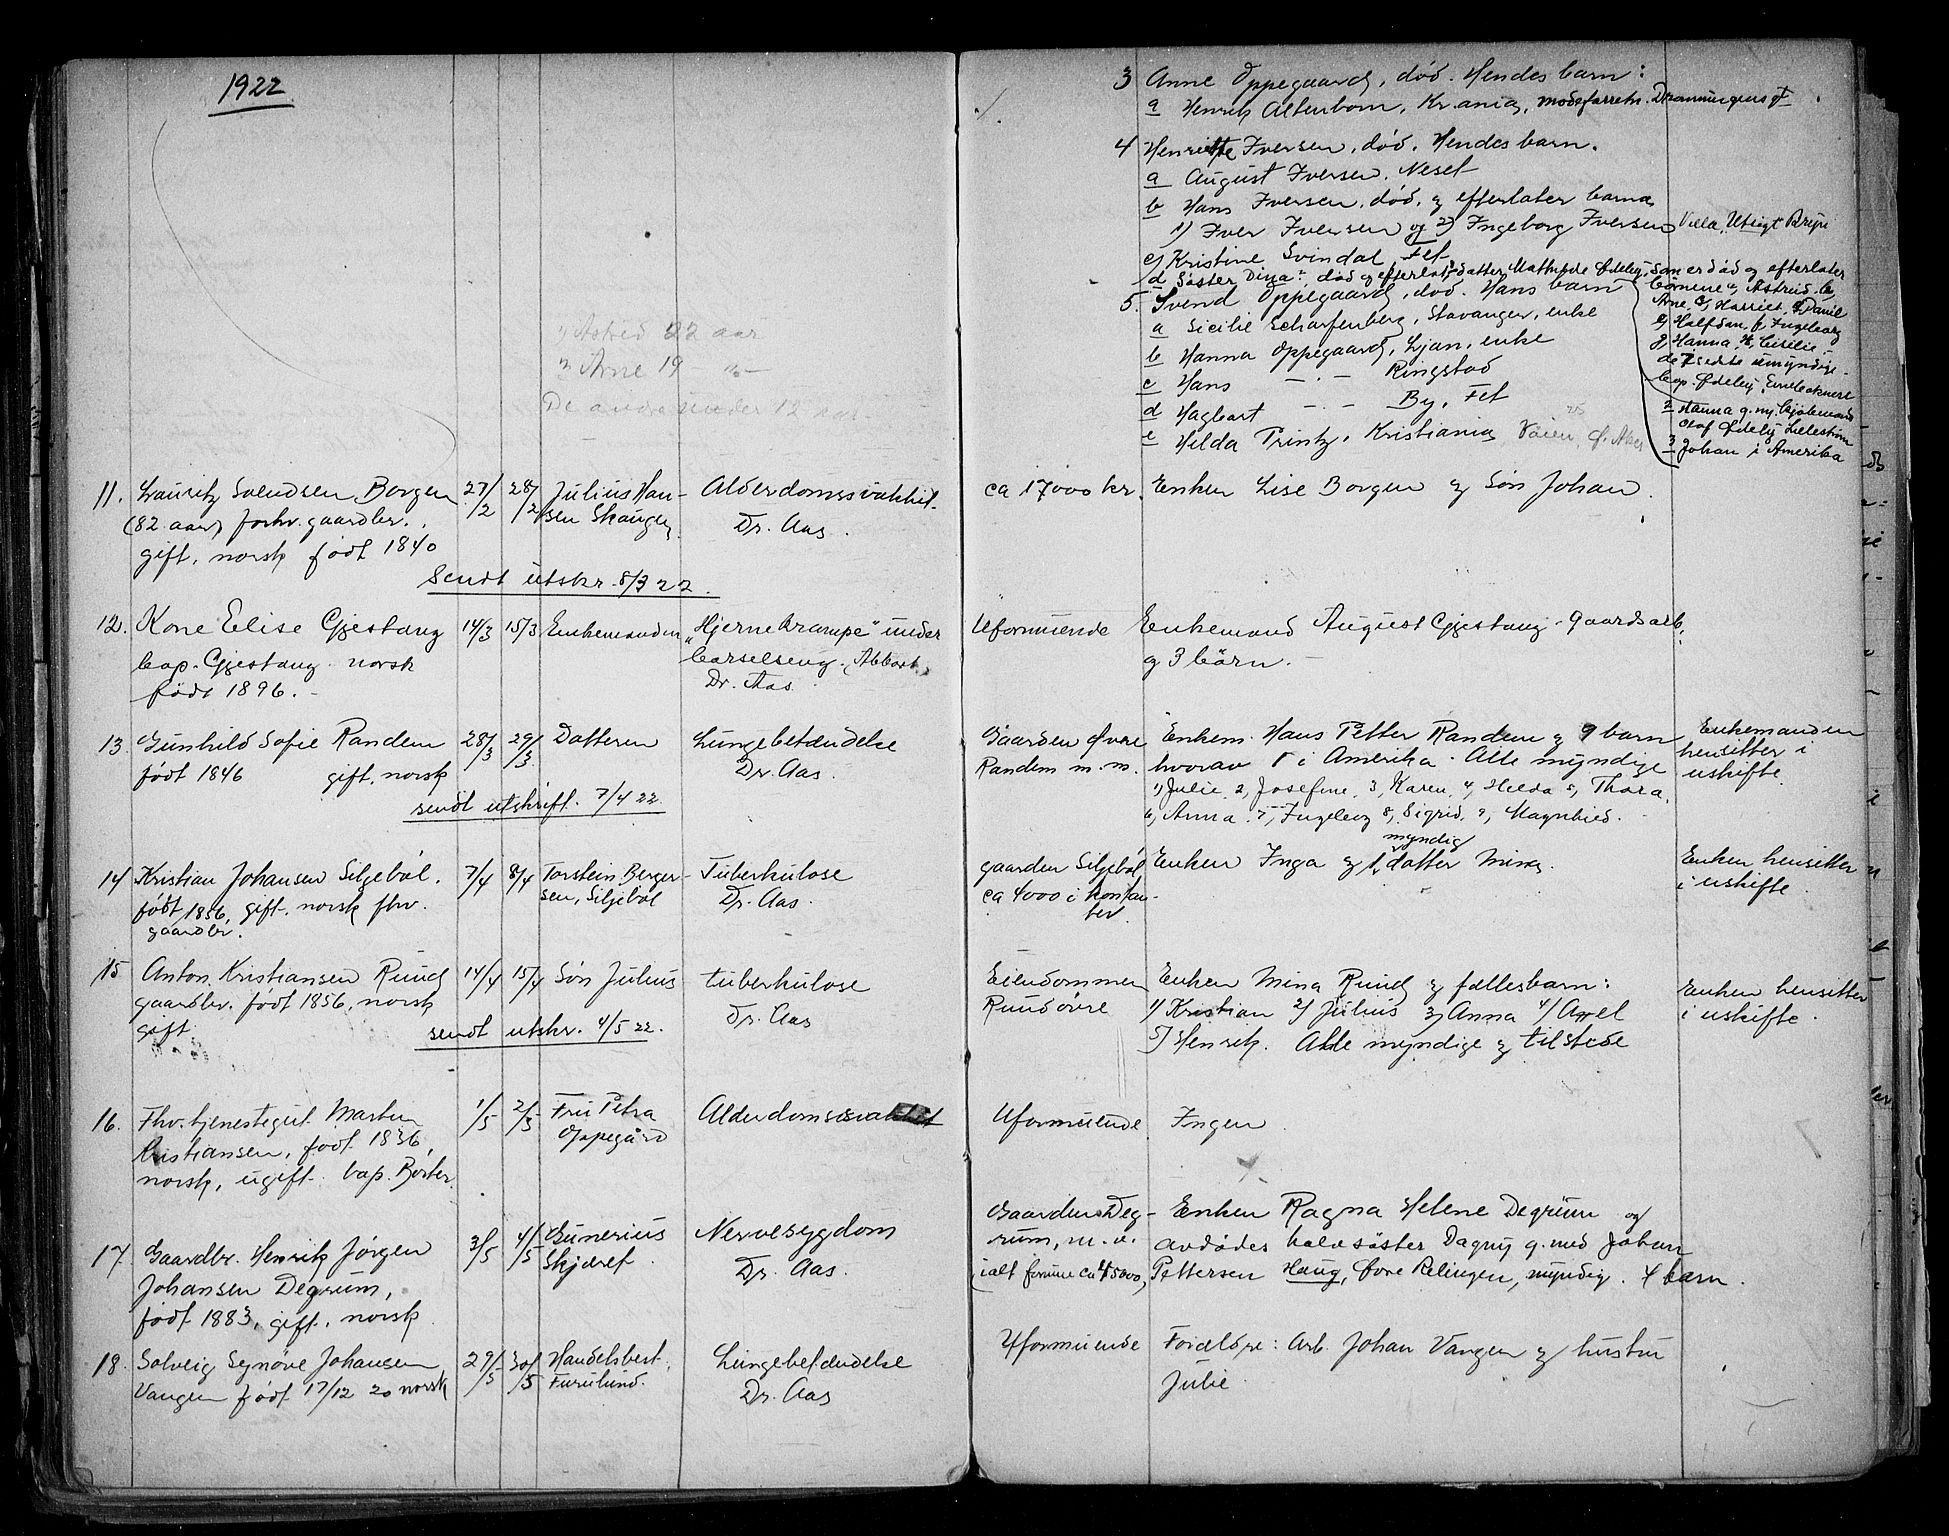 1922
1) Astrid 22 aar
2) Arne 19 -"-
De andre under 12 aar.
3 Anne Oppegaard, död. Hendes barn:
a Henrik Altenborn, Kr.ania,
4 Henriette Iversen, död. Hendes barn.
a August Iversen, Neset
b Hans Iversen, död, og efterlater barna
1) Iver Iversen og 2) Ingeborg Iversen Villa Utsigt
c) Kristine Svindal, Fet
d Söster Dina: död og efterlot datter Mathilde Ödeby, som er död og efterlater
börnene a, Astrid b,
Arne, c, Harriet, d, Daniel
e, Halfdan, f, Ingeborg
g, Hanna, h, Cicilie -
de 7 sidste umyndige -
bop. Ödeby, Enebakneset
2 Hanna g. m.
Olaf Ödeby Lilleström
3 Johan i Amerika
5. Svend Oppegaard, död. Hans barn
a Sicilie Scharfenberg, Stavanger, enke
b Hanna Oppegaard, Ljan, enke
c Hans -"- Ringstad
d Hagbart -"- By, Fet
e Hilda Printz, Kristiania
11. Lauritz Svendsen Borgen 27/2 28/2 Julius Han- Alderdomssvakhet. ca 17000 kr. Enken Lise Borgen og Sön Johan.
(82 aar) forhv. gaardbr. sen Skaugen Dr. Aas.
gift, norsk födt 1840
Sendt utskr. 8/3 22.
12. Kone Elise Gjestang 14/3 15/3 Enkemanden "Hjernekrampe" under Uformuende Enkemand August Gjestang - gaardsarb.
bop. Gjestang norsk barselseng. (Abbort) og 3 börn. -
födt 1896. - Dr. Aas.
13. Gunhild Sofie Randem 28/3 29/3 Datteren Lungebetændelse Gaarden Övre Enkem. Hans Petter Randem og 9 barn Enkemanden
födt 1846 gift, norsk Dr. Aas. Randem m.m. hvorav 1 i Amerika. Alle myndige hensitter i
sendt utskrift. 7/4 22. 1, Julie 2, Josefine, 3, Karen, 4, Hilda 5, Thora, uskifte.
6, Anna. 7, Ingeborg 8, Sigrid, 9, Magnhild.
14 Kristian Johansen Siljeböl. 7/4 8/4 Torstein Berger- Tuberkulose gaarden Siljeböl Enken Inga og 1 myndig datter Mina. Enken hensitter
födt 1856, gift, norsk fhv. sen, Siljeböl Dr. Aas. ca 4000 i kontan- i uskifte.
gaardbr. ter.
15 Anton Kristiansen Ruud 14/4 15/4 Sön Julius tuberkulose Eiendommen Enken Mina Ruud og fællesbarn: Enken hensitter
gaardbr. födt 1856, norsk Dr. Aas Ruud övre 1) Kristian 2) Julius 3) Anna 4) Axel i uskifte.
gift. sendt utskr. 4/5 22. 5) Henrik. Alle myndige og tilstede
16. Fhv. tjenestegut Martin 1/5 2/5 Fru Petra Alderdomssvakhet Uformuende Ingen.
Kristiansen, födt 1836, Oppegård
norsk, ugift. bop. Börter.
17. Gaardbr. Henrik Jörgen 3/5 4/5 Gunerius Nervesygdom Gaarden Deg- Enken Ragna Helene Degrum og
Johansen Degrum, Skjæret. Dr. Aas. rum, m.v. avdödes halvsöster Dagny g. med Johan
födt 1883, gift, norsk ialt formue ca 45000, Pettersen Haug, Övre Rælingen, myndig. 4 barn.
18. Solveig Synöve Johansen 29/5 30/5 Handelsbest. Lungebetændelse Uformuende Foreldre: Arb. Johan Vangen og hustru
Vangen födt 17/12 20 norsk Furulund. Dr. Aas Julie.